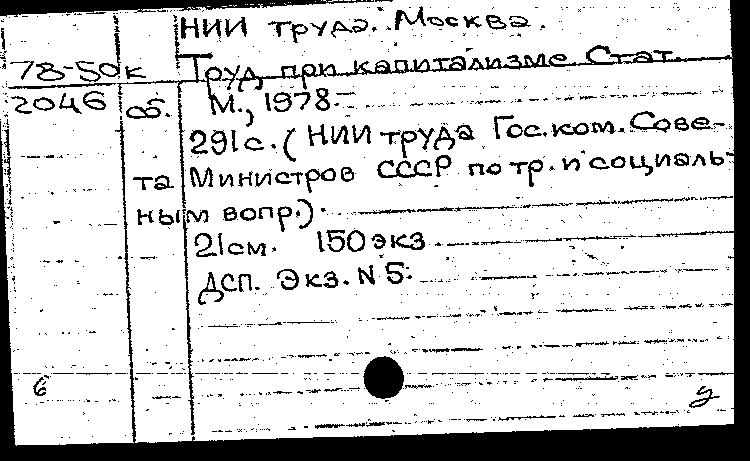 НИИ труда. Москва.
78-50к Труд при капитализме Стат.
2046 об. М., 1978.-
291с. (НИИ труда Гос.ком.Сове-
та Министров СССР по тр. и социаль-
ным вопр.).
21см. 150 экз
ДСП. Экз. N 5.
б у